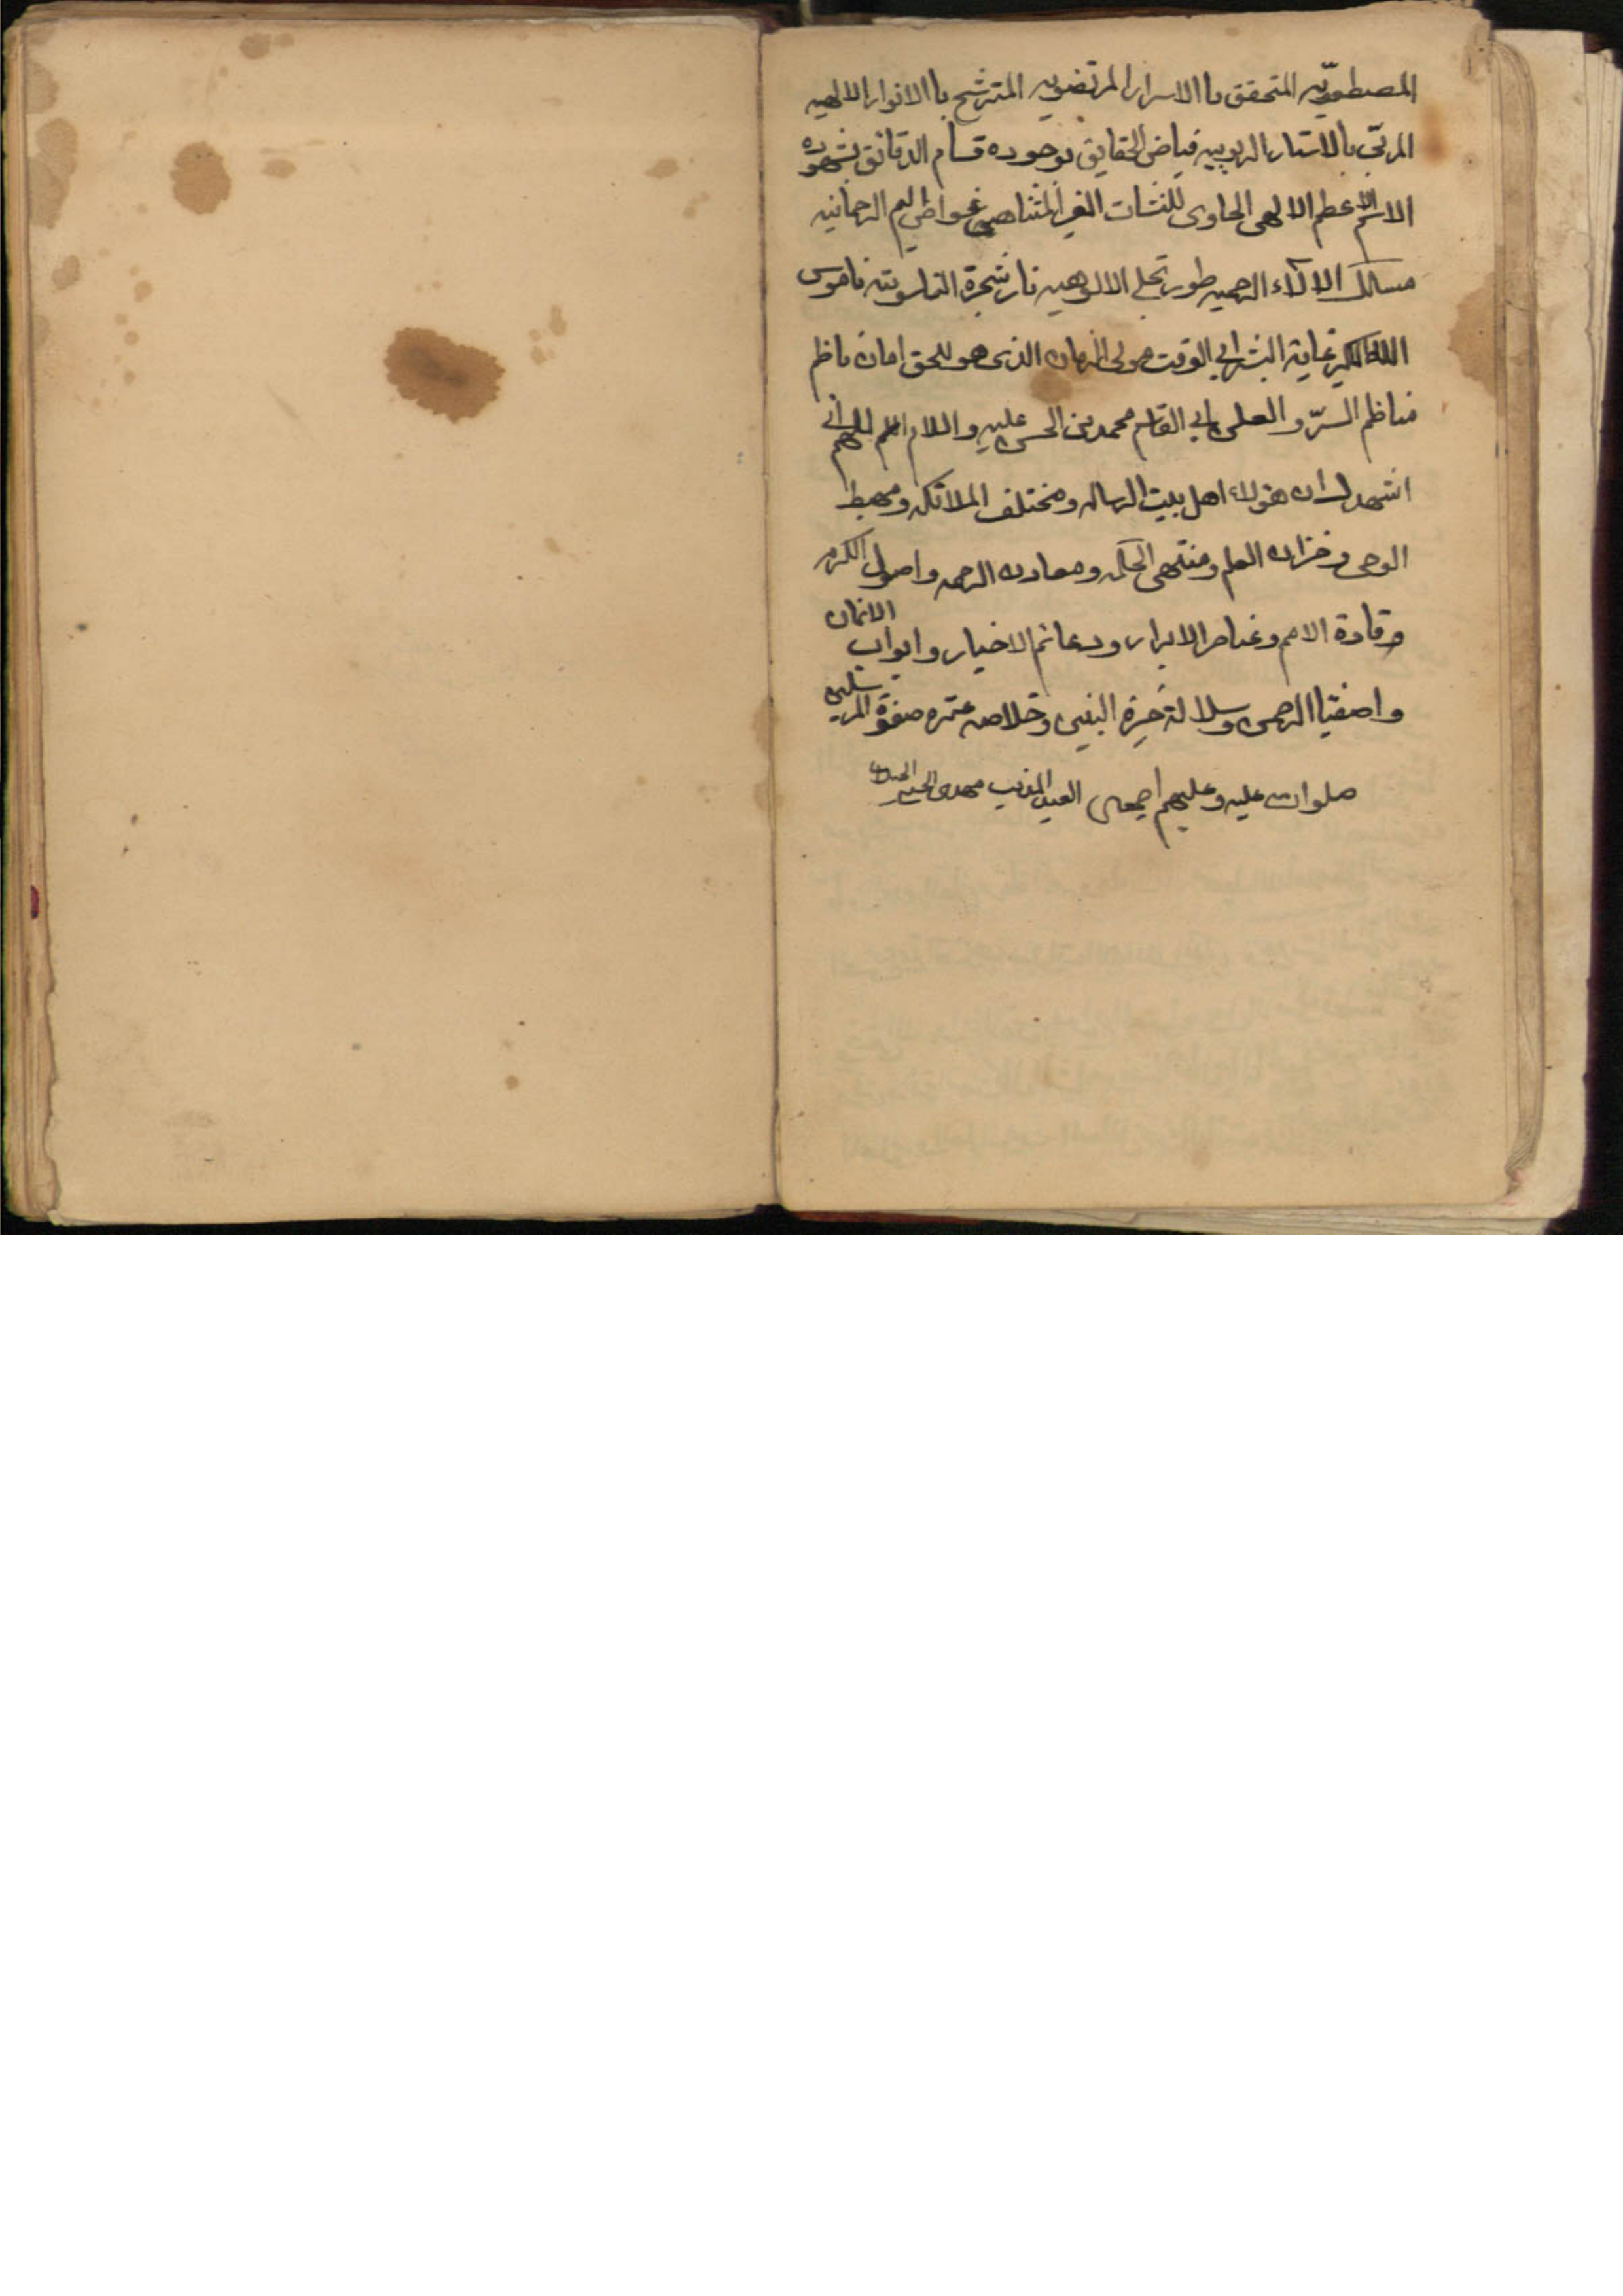 المصطفویّه المتحقق باالاسرار المرتضویه المترشح باالانوار الالهیه
المربّی بالاستار الربوبیه فیاض الحقایق بوجوده قسام الدقائق بشهوده
الاسم الاعظم الالهی الحاوی للنشات الغیر المتناهی غواص الیم الرحمانیه
مسالک الالآء الرحیمیه طور تجلی الالوهیه نار شجرة الناسوتیه ناموس
الله الاکبر غایة البشر ابی الوقت مولی الزمان الذی هو للحق امان ناظم
مناظم السرّ و العلن ابی القاسم محمد بن الحسن علیه و السلام اللهم انی
اشهد ان هؤلاء اهل بیت الرساله و مختلف الملائکه و مهبط
الوحی و خزان العلم و منتهی الحکمه و معادن الرحمه و اصول الکرم
و قادة الامم و عناصر الابرار و دعائم الاخیار و ابواب الایمان
و اصفیا الرحمن و سلالة خیرة النبین و خلاصه عتره صفوة المرسلین
صلوات علیه و علیهم اجمعین العبد المذنب مهدی الحسینی